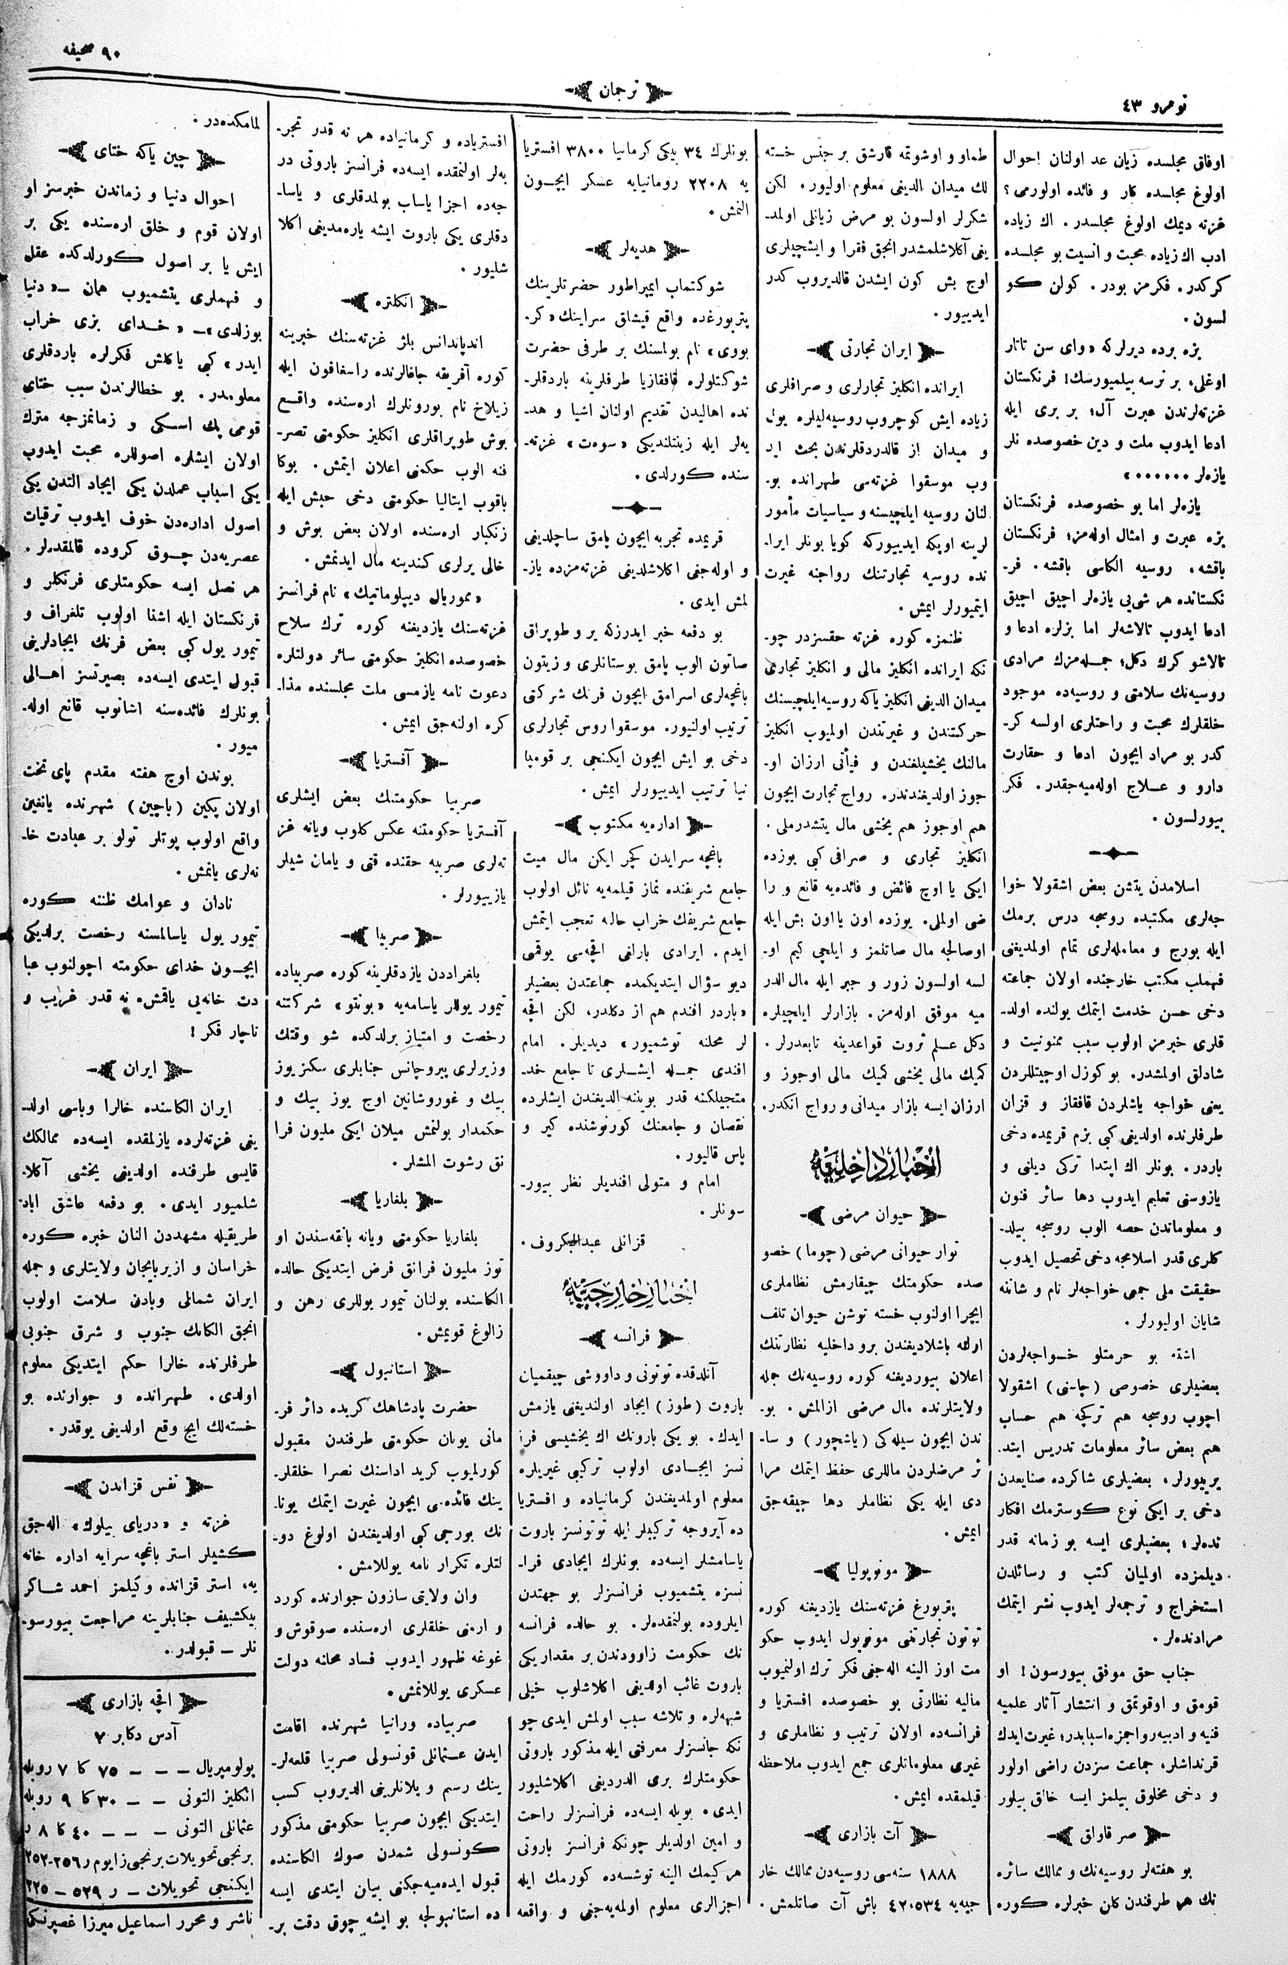 نومرو ٤٣
ترجمان
٩٠ صحیفه
اوفاق مجلسده زیان عد اولنان احوال
اولوغ مجلسده کار و فائده اولورمی؟
غزته دیمك اولوغ مجلسدر. اك زیاده
ادب اك زیاده محبت و انسیت بو مجلسده
کرکدر. فکرمز بودر. کولن کو
لسون.
بزه برده دیرلرکه «وای سن تاتار
اوغلی، بر نرسه بیلمیورسك! فرنکستان
غزته‌لرندن عبرت آل؛ بر بری ایله
ادعا ایدوب ملت و دین خصوصده نلر
یازه‌لر ......»
یازه‌لر اما بو خصوصده فرنکستان
بزه عبرت و امثال اوله‌مز؛ فرنکستان
باقشه، روسیه الکاسی باقشه. فر-
نکستانده هر شی‌یی یازه‌لر اچیق اچیق
ادعا ایدوب تالاشه‌لر اما بزلره ادعا و
تالاشو کرك دکل؛ جمله‌مزك مرادی
روسیه‌نك سلامتی و روسیه‌ده موجود
خلقلرك محبت و راحتلری اولسه کر-
کدر بو مراد ایچون ادعا و حقارت
دارو و علاج اوله‌میه‌جقدر. فکر
بیورلسون.
اسلامدن یتشن بعض اشقولا خوا
جه‌لری مکتبده روسجه درس برمك
ایله بورج و معامله‌لری تمام اولمدیغنی
فهملب مکتب خارجنده اولان جماعته
دخی حسن خدمت ایتمك یولنده اولد-
قلری خبرمز اولوب سبب ممنونیت و
شادلق اولمشدر. بو کوزل اوچیتللردن
یعنی خواجه یاشلردن قافقاز و قزان
طرفلرنده اولدیغی کبی بزم قریمده دخی
باردر. بونلر اك ابتدا ترکی دیلنی و
یازوسنی تعلیم ایدوب دها سائر فنون
و معلوماتدن حصه الوب روسجه بیلد-
کلری قدر اسلامجه دخی تحصیل ایدوب
حقیقت ملی جمی خواجه‌لر نام و شاننه
شایان اولیورلر.
اشته بو حرمتلو خواجه‌لردن
بعضیلری خصوصی (چاسنی) اشقولا
اچوب روسجه هم ترکچه هم حساب
هم بعض سائر معلومات تدریس ایتد-
یربیورلر. بعضیلری شاکرده صنایعدن
دخی بر ایکی نوع کوسترمك افکار
نده‌لر؛ بعضیلری ایسه بو زمانه قدر
دیلمزده اولمیان کتب و رسائلدن
استخراج و ترجمه‌لر ایدوب نشر ایتمك
مرادنده‌لر.
جناب حق موفق بیورسون! او
قومق و اوقوتمق و انتشار آثار علمیه
فنیه و ادبیه رواجمزه اسبابدر؛ غیرت ایدك
قرنداشلر، جماعت سزدن راضی اولور
و دخی مخلوق بیلمز ایسه خالق بیلور
صر قاراق
بو هفته‌لر روسیه‌نك و ممالك سائره
نك هر طرفندن کلن خبرلره کوره
طماو و اوشوتمه قارشق بر جنس خسته
لك میدان الدیغی معلوم اولیور. لکن
شکرلر اولسون بو مرض زیانلی اولمد-
یغی آکلاشلمشدر انجق فقرا و ایشچیلری
اوچ بش کون ایشدن قالدیروب کدر
ایدییور.
ایران تجارتی
ایرانده انکلیز تجارلری و صرافلری
زیاده ایش کوچروب روسیه‌لیلره یول
و میدان از قالدردقلرندن بحث اید
وب موسقوا غزته‌سی طهرانده بو-
لنان روسیه ایلچیسنه و سیاسیات مأمور
لرینه اوپکه ایدییورکه کویا بونلر ایرا-
نده روسیه تجارتنك رواجنه غیرت
ایتمیورلر ایمش.
ظنمزه کوره غزته حقسزدر چو-
نکه ایرانده انکلیز مالی و انکلیز تجارتی
میدان الدیغی انکلیز یاکه روسیه ایلچیسنك
حرکتندن و غیرتندن اولمیوب انکلیز
مالنك یخشیلغندن و فیأتی ارزان او-
جوز اولدیغندندر. رواج تجارت ایچون
هم اوجوز هم یخشی مال یتشدرملی.
انکلیز تجاری و صرافی کبی یوزده
ایکی یا اوچ فائض و فائده‌یه قانع و را
ضی اولملی. یوزده اون یا اون بش ایله
اوصالجه مال صاتلمز و ایلچی کیم او-
لسه اولسون زور و جبر ایله مال الدر
میه موفق اوله‌مز. بازارلر ایلچیلره
دکل علم ثروت قواعدینه تابعدرلر.
کیمك مالی یخشی کیمك مالی اوجوز و
ارزان ایسه بازار میدانی و رواج انکدر.
اخبار داخلیه
حیوان مرضی
توار حیوانی مرضی (چوما) خصو
صده حکومتك چیقارمش نظاملری
ایجرا اولنوب خسته توشن حیوان تلف
اولنه باشلادیغندن برو داخلیه نظارتنك
اعلان بیوردیغنه کوره روسیه‌نك جمله
ولایتلرنده مال مرضی ازالمش. بو-
ندن ایچون سیله‌کی (یاشچور) و سا-
ئر مرضلردن ماللری حفظ ایتمك مرا
دی ایله یکی نظاملر دها چیقه‌جق
ایمش.
مونوپولیا
پتربورغ غزته‌سنك یازدیغنه کوره
توتون تجارتنی مونوپول ایدوب حکو
مت اوز الینه اله‌جنی فکر ترك اولنمیوب
مالیه نظارتی بو خصوصده افستریا و
فرانسه‌ده اولان ترتیب و نظاملری و
غیری معلوماتلری جمع ایدوب ملاحظه
قیلمقده ایمش.
آت بازاری
١٨٨٨ سنه‌سی روسیه‌دن ممالك خار
جیه‌یه ٤٢٠٥٣٤ باش آت صاتلمش.
بونلرك ٣٤ بیکی کرمانیا ٣٨٠٠ افستریا
یه ٢٢٠٨ رومانیایه عسکر ایچون
النمش.
هدیه‌لر
شوکتمآب ایمپراطور حضرتلرینك
پتربورغده واقع قیشلق سراینك «کر-
بووی» نام بولمسنك بر طرفی حضرت
شوکتلولره قافقازیا طرفلرینه باردقلر-
نده اهالیدن تقدیم اولنان اشیا و هد-
یه‌لر ایله زینتلندیکی «سوه‌ت» غزته-
سنده کورلدی.
قریمده تجربه ایچون پامق ساچلدیغی
و اوله‌جنی اکلاشلدیغی غزته‌مزده یاز-
لمش ایدی.
بو دفعه خبر ایدرزکه یر و طوپراق
صاتون الوب پامق بوستانلری و زیتون
باغچه‌لری اسرامق ایچون فرنك شرکتی
ترتیب اولنیور. موسقوا روس تجارلری
دخی بو ایش ایچون ایکنجی بر قومپا
نیا ترتیب ایدییورلر ایمش.
اداره‌یه مکتوب
باغچه سرایدن کچر ایکن مال میت
جامع شریفنده نماز قیلمه‌یه نائل اولوب
جامع شریفك خراب حاله تعجب ایتمش
ایدم. ایرادی بارلغی اقچه‌سی یوقمی
دیو سؤال ایتدیکمده جماعتدن بعضیلر
«باردر افندم هم از دکلدر، لکن اقچه
لر محلنه توشمیور» دیدیلر. امام
افندی جمله ایشلری تا جامع خد-
متجیلکنه قدر بویننه الدیغندن ایشلرده
نقصان و جامعنك کورنوشنده کیر و
پاس قالیور.
امام و متولی افندیلر نظر بیور-
سونلر.
قزانلی عبدالجبکروف.
اخبار خارجیه
فرانسه
آتلدقده توتونی و داووشی چیقمیان
باروت (طوز) ایجاد اولندیغنی یازمش
ایدك. بو یکی باروتك اك یخشیسی فرا
نسز ایجادی اولوب ترکیبی غیریلره
معلوم اولمدیغندن کرمانیاده و افستریا
ده آیروجه ترکیبلر ایله توتونسز باروت
یاسامشلر ایسه‌ده بونلرك ایجادی فرا-
نسزه یتشمیوب فرانسزلر بو جهتدن
ایلروده بولنمقده‌لر. بو حالده فرانسه
نك حکومت زاوودندن بر مقدار یکی
باروت غائب اولدیغی اکلاشلوب خیلی
شبهه‌لره و تلاشه سبب اولمش ایدی چو
نکه جانسزلر معرفتی ایله مذکور باروتی
حکومتلرك بری الدردیغی اکلاشلیور
ایدی. بویله ایسه‌ده فرانسزلر راحت
و امین اولدیلر چونکه فرانسز باروتی
هرکیمك الینه توشسه‌ده کورمك ایله
اجزالری معلوم اولمه‌یه‌جغنی و واقعه
افستریاده و کرمانیاده هر نه قدر تجر-
به‌لر اولنمقده ایسه‌ده فرانسز باروتی در
جه‌ده اجزا یاساب بولمدقلری و یاسا-
دقلری یکی باروت ایشه یاره‌مدیغی اکلا
شلیور.
انکلتره
اندپاندانس بلژ غزته‌سنك خبرینه
کوره آفریقه جافالرنده راسغافون ایله
زیلاخ نام بورونلرك اره‌سنده واقع
بوش طوپراقلری انکلیز حکومتی تصر-
فنه الوب حکمی اعلان ایتمش. بوکا
باقوب ایتالیا حکومتی دخی حبش ایله
زنکبار اره‌سنده اولان بعض بوش و
خالی یرلری کندینه مال ایدنمش.
«موریال دیپلوماتیك» نام فرانسز
غزته‌سنك یازدیغنه کوره ترك سلاح
خصوصده انکلیز حکومتی سائر دولتلره
دعوت نامه یازمسی ملت مجلسنده مذا-
کره اولنه‌جق ایمش.
آفستریا
صربیا حکومتنك بعض ایشلری
آفستریا حکومتنه عکس کلوب ویانه غز
ته‌لری صربیه حقنده قتی و یامان شیلر
یازییورلر.
صربیا
بلغراددن یازدقلرینه کوره صربیاده
تیمور یوللر یاسامه‌یه «بونتو» شرکتنه
رخصت و امتیاز برلدکده شو وقتك
وزیرلری پیروچانس جنابلری سکز یوز
بیك و غوروشانین اوچ یوز بیك و
حکمدار بولنمش میلان ایکی ملیون فرا
نق رشوت المشلر.
بلغاریا
بلغاریا حکومتی ویانه بانقه‌سندن او
توز ملیون فرانق قرض ایتدیکی حالده
الکاسنده بولنان تیمور یوللری رهن و
زالوغ قویمش.
استانبول
حضرت پادشاهك کریده دائر فر-
مانی یونان حکومتی طرفندن مقبول
کورلمیوب کرید اداسنك نصرا خلقلر-
ینك فائده‌سی ایچون غیرت ایتمك یونا-
نك بورجی کبی اولدیغندن اولوغ دو-
لتلره تکرار نامه یوللامش.
وان ولایتی سازون جوارنده کورد
و ارمنی خلقلری اره‌سنده صوقوش و
غوغه ظهور ایدوب فساد محلنه دولت
عسکری یوللانمش.
صربیاده ورانیا شهرنده اقامت
ایدن عثمانلی قونسولی صربیا قلعه‌لر-
ینك رسم و پلانلرینی الدیروب کسب
ایتدیکی ایچون صربیا حکومتی مذکور
کونسولی شمدن صوك الکاسنده
قبول ایده‌میه‌جکنی بیان ایتدی ایسه
ده استانبولجه بو ایشه چوق دقت بر-
لمامکده‌در.
چین یاکه ختای
احوال دنیا و زماندن خبرسز او
اولان قوم و خلق اره‌سنده یکی بر
ایش یا بر اصول کورلدکده عقل
و فهملری یتشمیوب همان – «دنیا
بوزلدی» – «خدای بزی خراب
ایدر» کبی یاکلش فکرلره باردقلری
معلومدر. بو خطالرندن سبب ختای
قومی پك اسکی و زمانمزجه مترك
اولان ایشلره اصوللره محبت ایدوب
یکی اسباب عملدن یکی ایجاد التدن یکی
اصول اداره‌دن خوف ایدوب ترقیات
عصریه‌دن چوق کروده قالمقده‌لر.
هر نصل ایسه حکومتلری فرنکلر و
فرنکستان ایله اشنا اولوب تلغراف و
تیمور یول کبی بعض فرنك ایجادلرینی
قبول ایتدی ایسه‌ده بصیرتسز اهالی
بونلرك فائده‌سنه اشانوب قانع اوله-
میور.
بوندن اوچ هفته مقدم پای تخت
اولان پکین (باچین) شهرنده یانغین
واقع اولوب پوتلر تولو بر عبادت خا-
نه‌لری یانمش.
نادان و عوامك ظننه کوره
تیمور یول یاسالمسنه رخصت برلدیکی
ایچون خدای حکومته اچولنوب عبا
دت خانه‌یی یاقمش. نه قدر غریب و
ناچار فکر!
ایران
ایران الکاسنده خالرا وباسی اولد-
یغی غزته‌لرده یازلمقده ایسه‌ده ممالکك
قایسی طرفنده اولدیغی یخشی آکلا-
شلمیور ایدی. بو دفعه عاشق اباد
طریقیله مشهددن النان خبره کوره
خراسان و ازیربایجان ولایتلری و جمله
ایران شمالی وبادن سلامت اولوب
انجق الکانك جنوب و شرق جنوبی
طرفلرنده خالرا حکم ایتدیکی معلوم
اولدی. طهرانده و جوارنده بو
خسته‌لك ایچ وقع اولدیغی یوقدر.
نفس قزاندن
غزته و «دریای بیلوك» اله‌جق
کشیلر استر باغچه سرایه اداره خانه
یه، استر قزانده وکیلمز احمد شاکر
بیکشییف جنابلرینه مراجعت بیورسو-
نلر – قبولدر.
اقچه بازاری
آدس دکابر ٧
پولومپریال – – – ٧٥ کا ٧ روبله
انکلیز التونی – – ٣٠ کا ٩ روبله
عثمانلی التونی – – – ٤٠ کا ٨ ر
برنجی تحویلات برنجی زایوم ر ٢٥٦–٢٥٢
ایکنجی تحویلات – ر ٥٢٩ – ٢٢٥
ناشر و محرر اسماعیل میرزا غصپرنسکی